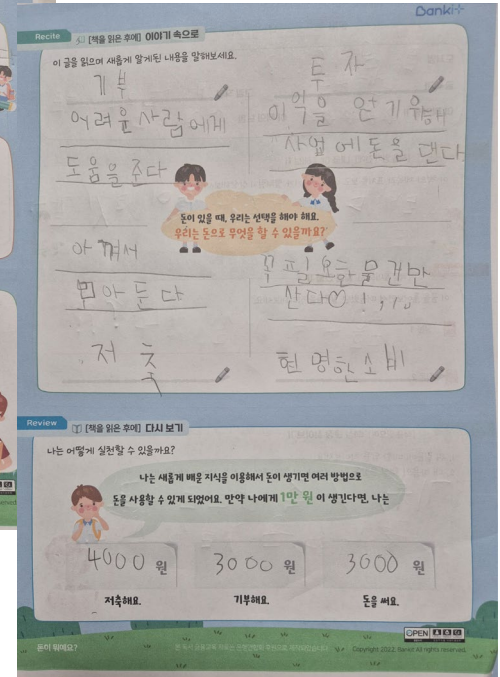 Danki+
Recite
[책을 읽은 후에] 이야기 속으로
이 글을 읽으며 새롭게 알게된 내용을 말해보세요.
기부
어려운 사람에게
도움을 준다
투자
이익을 얻기 위해
사업에 돈을 댄다
돈이 있을 때, 우리는 선택을 해야 해요.
우리는 돈으로 무엇을 할 수 있을까요?
아껴서
모아 둔다
저축
꼭 필요한 물건만
산다♡
현명한 소비
Review
[책을 읽은 후에] 다시 보기
나는 어떻게 실천할 수 있을까요?
나는 새롭게 배운 지식을 이용해서 돈이 생기면 여러 방법으로
돈을 사용할 수 있게 되었어요. 만약 나에게 1만 원 이 생긴다면, 나는
4000 원
3000 원
3000 원
저축해요.
기부해요.
돈을 써요.
OPEN
돈이 뭐예요?
Copyright 2022. Bankit All rights reserved.